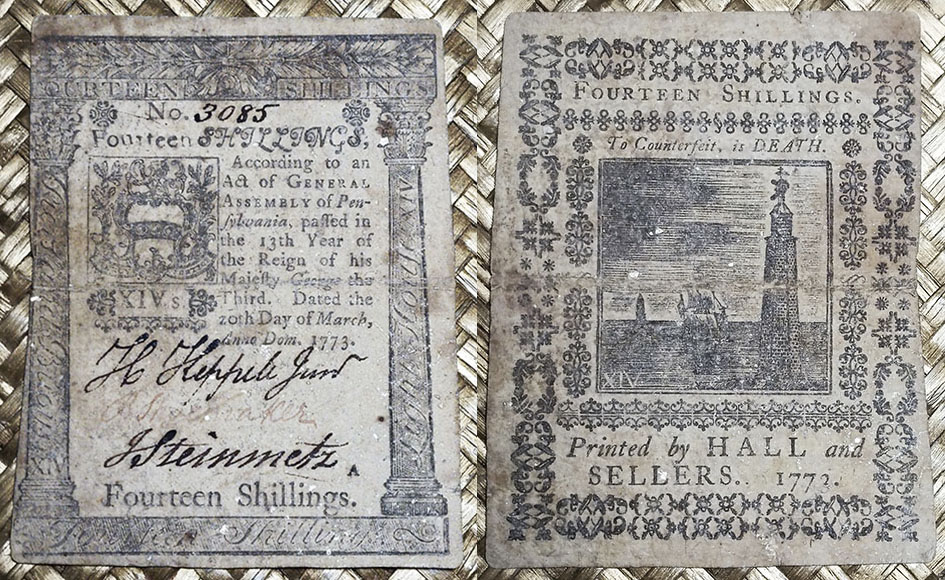 FOURTEEN SHILLINGS
No. 3085
Fourteen SHILLINGS,
According to an
Act of GENERAL
ASSEMBLY of Pen-
ſylvania, paſſed in
the 13th Year of
the Reign of his
Majeſty George the
Third. Dated the
20th Day of March,
Anno Dom. 1773.
XIV.s
H Keppele Junr
J Steinmetz
Fourteen Shillings.
Fourteen Shillings
FOURTEEN SHILLINGS.
To Counterfeit, is DEATH.
XIV
Printed by HALL and
SELLERS. 1773.